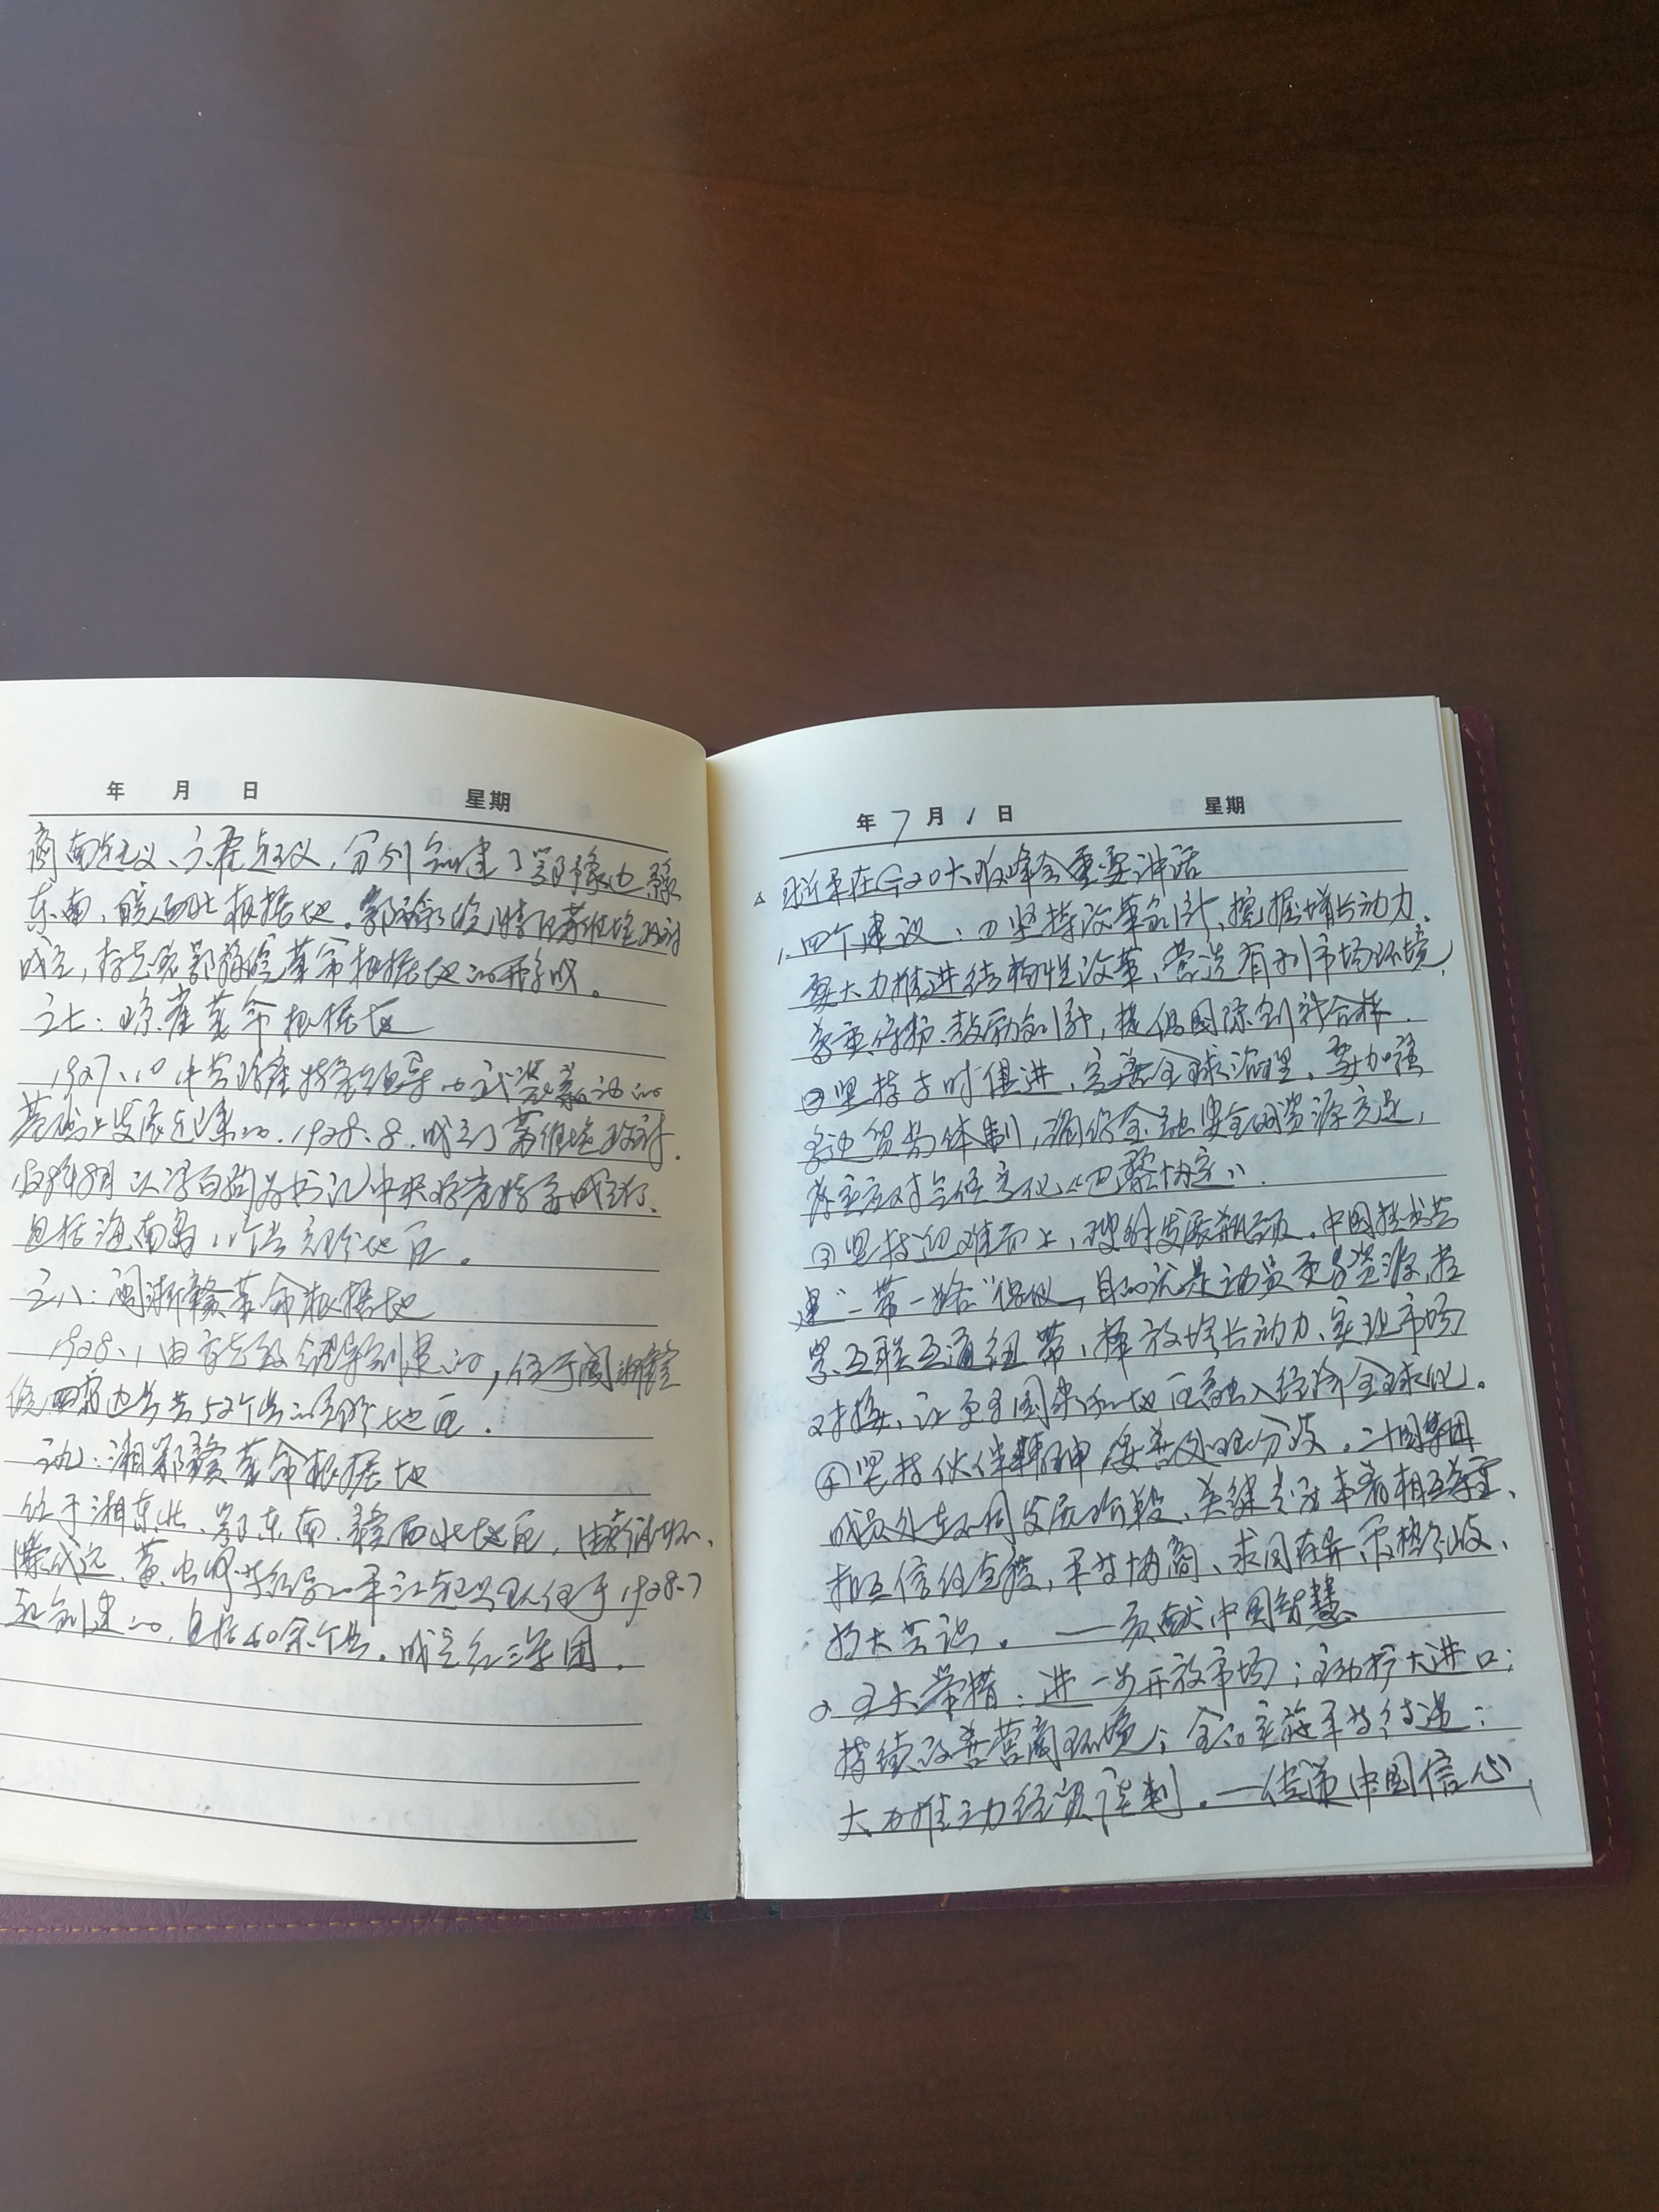 年 月 日 星期
商南起义、六霍起义,分别创建了鄂豫边、豫
东南、皖西北根据地。鄂豫皖特区苏维埃政府
成立,标志着鄂豫皖革命根据地的形成。
之七:琼崖革命根据地
1927.10 中共琼崖特委领导的武装暴动的
基础上发展起来的.1928.8.成立了苏维埃政府.
以冯白驹为书记 中央琼崖特委成立了.
包括海南岛11个县部分地区。
之八:闽浙赣革命根据地
1928.1由方志敏领导创建的,位于闽浙赣
皖四省边界共52个县的部分地区.
之九:湘鄂赣革命根据地
位于湘东北、鄂东南、赣西北地区,由彭德怀、
滕代远、黄公略等领导的平江起义队伍于1928.7
起创建的,包括40余个县。成立红三军团.
年 7 月 1 日 星期
△ 习近平在G20大阪峰会重要讲话
1.四个建议:①坚持改革创新、挖掘增长动力.
要大力推进结构性改革、营造有利市场环境,
尊重、保护、鼓励创新,提倡国际创新合作.
②坚持与时俱进,完善全球治理,要加强
多边贸易体制,确保金融安全网资源充足,
落实应对气候变化《巴黎协定》.
③坚持迎难而上,破解发展瓶颈。中国提出共
建“一带一路”倡议,目的就是动员更多资源,拉
紧互联互通纽带,释放增长动力、实现市场
对接,让更多国家和地区融入经济全球化。
④坚持伙伴精神,妥善处理分歧。二十国集团
成员处在不同发展阶段、关键是要本着相互尊重、
相互信任态度,平等协商、求同存异、管控分歧、
扩大共识。——贡献中国智慧
2 五大举措:进一步开放市场;主动扩大进口;
持续改善营商环境;全面实施平等待遇;
大力推动经贸谈判。——传递中国信心